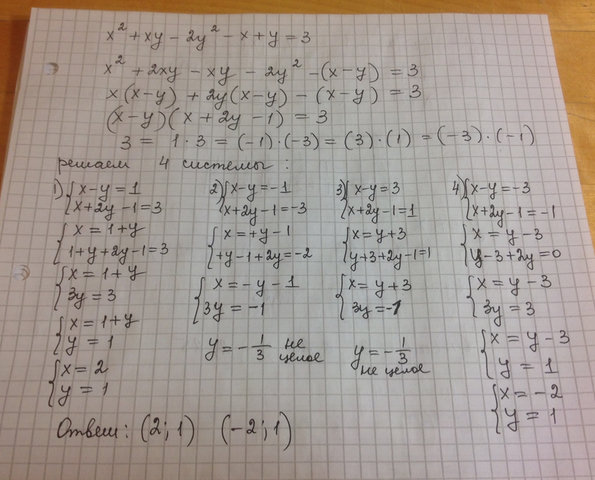 x² + xy - 2y² - x + y = 3
x² + 2xy - xy - 2y² - (x-y) = 3
x(x-y) + 2y(x-y) - (x-y) = 3
(x-y)(x + 2y - 1) = 3
3 = 1·3 = (-1)·(-3) = (3)·(1) = (-3)·(-1)
решаем 4 системы:
1) {x-y=1
x+2y-1=3
{x=1+y
1+y+2y-1=3
{x=1+y
3y=3
{x=1+y
y=1
{x=2
y=1
2) {x-y=-1
x+2y-1=-3
{x=+y-1
+y-1+2y=-2
{x=-y-1
3y=-1
y=-1/3 не
целое
3) {x-y=3
x+2y-1=1
{x=y+3
y+3+2y-1=1
{x=y+3
3y=-1
y=-1/3
не целое
4) {x-y=-3
x+2y-1=-1
{x=y-3
y-3+2y=0
{x=y-3
3y=3
{x=y-3
y=1
{x=-2
y=1
Ответ: (2; 1) (-2; 1)